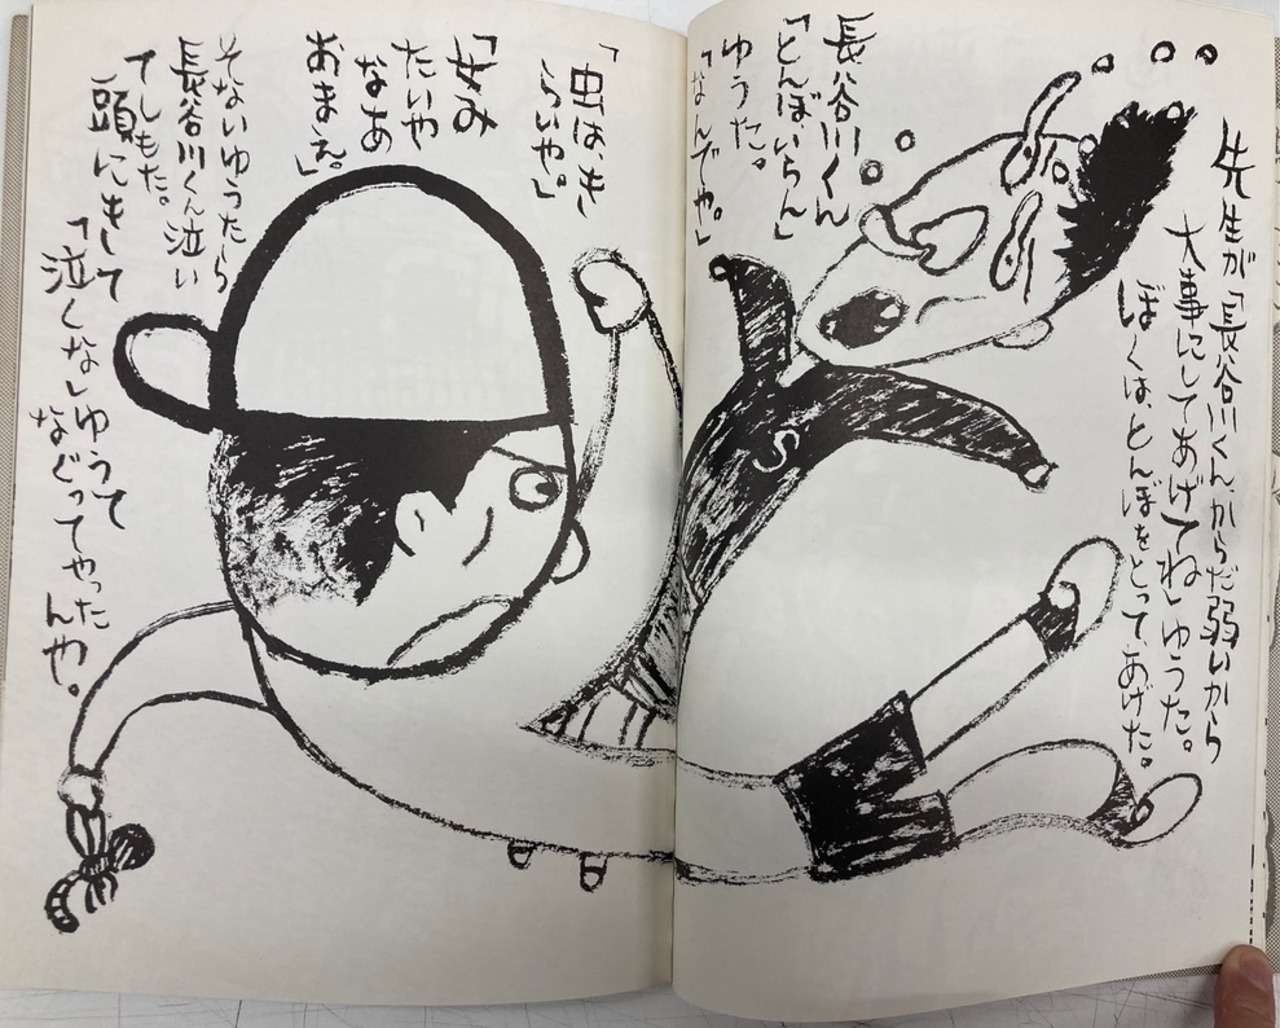 先生が「長谷川くん、からだ弱いから
大事にしてあげてね」ゆうた。
ぼくは、とんぼをとってあげた。
長谷川くん
「とんぼいらん」
ゆうた。
「なんでや。」
「虫は、き
らいや。」
「女み
たいや
なあ
おまえ。」
そないゆうたら
長谷川くん泣い
てしもた。
頭にきて
「泣くな」ゆうて
なぐってやった
んや。